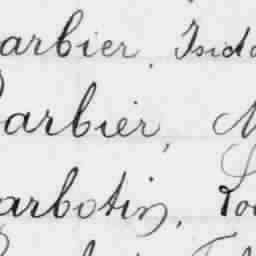 arbier. Isido
Barbier, M
arbotin, Lo